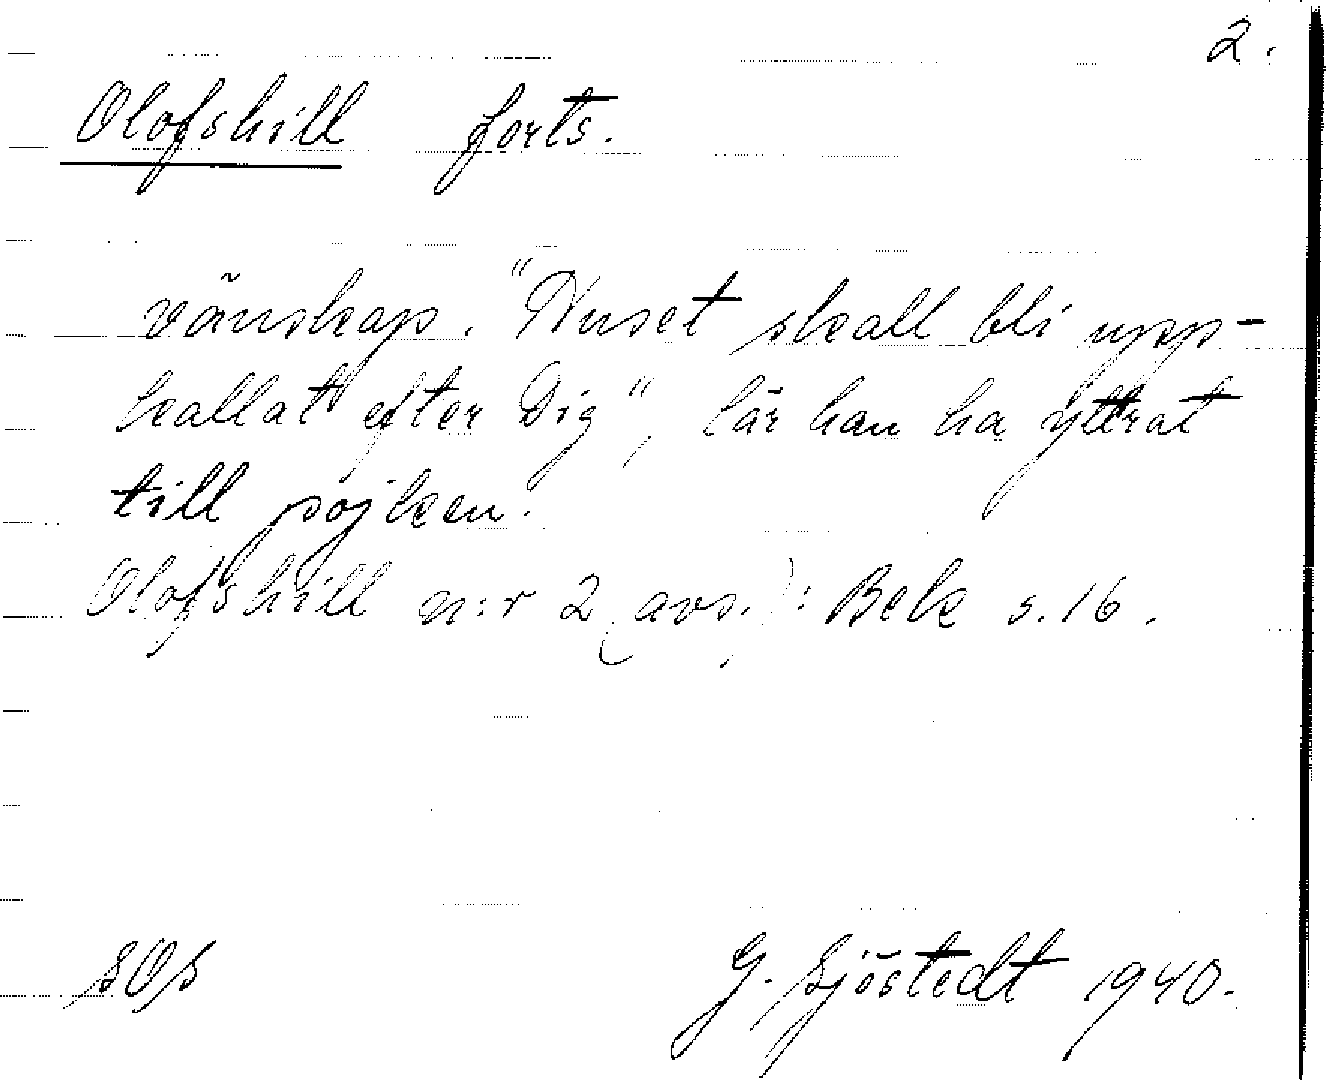 2.
Olofshill forts.
vänskap. "Huset skall bli upp-
kallat efter Dig", lär han ha yttrat
till pojken.
Olofshill n:r 2 (avs.): Bek s. 16.
SOs
G. Sjöstedt 1940.